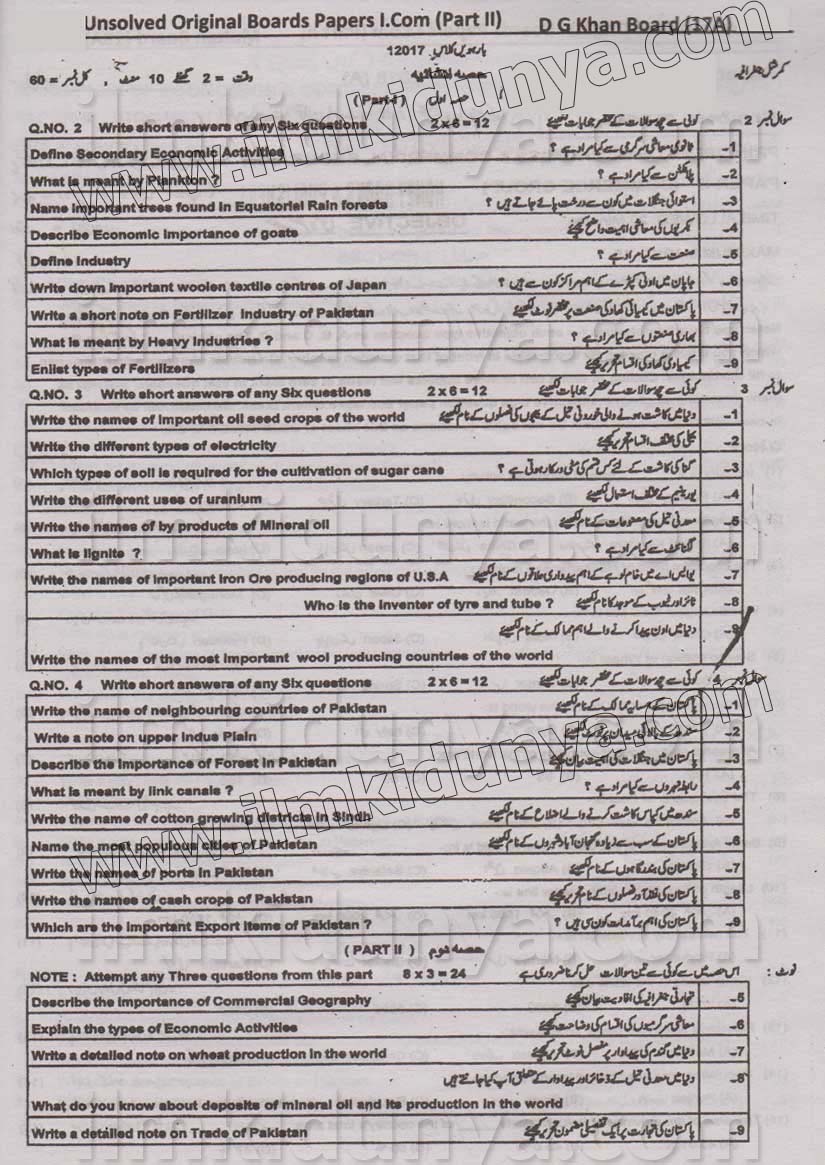 Unsolved Original Boards Papers I.Com (Part II) D G Khan Board (17A)
کمرشل جغرافیہ حصہ انشائیہ بارہویں کلاس 12017
وقت = 2 گھنٹے 10 منٹ , کل نمبر = 60
(Part-I) حصہ اول
Q.NO. 2 Write short answers of any Six questions 2 x 6 = 12 کوئی سے چھ سوالات کے مختصر جوابات لکھیئے سوال نمبر 2
Define Secondary Economic Activities ثانوی معاشی سرگرمی سے کیا مراد ہے ؟ -1
What is meant by Plankton ? پلانکٹن سے کیا مراد ہے ؟ -2
Name important trees found in Equatorial Rain forests استوائی جنگلات میں کون سے درخت پائے جاتے ہیں ؟ -3
Describe Economic importance of goats بکریوں کی معاشی اہمیت واضح کیجیئے -4
Define Industry صنعت سے کیا مراد ہے ؟ -5
Write down important woolen textile centres of Japan جاپان میں اونی کپڑے کے اہم مراکز کون سے ہیں ؟ -6
Write a short note on Fertilizer Industry of Pakistan پاکستان میں کیمیائی کھاد کی صنعت پر مختصر نوٹ لکھیئے -7
What is meant by Heavy Industries ? بھاری صنعتوں سے کیا مراد ہے ؟ -8
Enlist types of Fertilizers کیمیاوی کھاد کی اقسام تحریر کیجیئے -9
Q.NO. 3 Write short answers of any Six questions 2 x 6 = 12 کوئی سے چھ سوالات کے مختصر جوابات لکھیئے سوال نمبر 3
Write the names of important oil seed crops of the world دنیا میں کاشت ہونے والی خوردنی تیل کے بیجوں کی فصلوں کے نام لکھیئے -1
Write the different types of electricity بجلی کی مختلف اقسام تحریر کیجیئے -2
Which types of soil is required for the cultivation of sugar cane گنا کی کاشت کے لئے کس قسم کی مٹی درکار ہوتی ہے ؟ -3
Write the different uses of uranium یورینیم کے مختلف استعمال لکھیئے -4
Write the names of by products of Mineral oil معدنی تیل کی مصنوعات کے نام لکھیئے -5
What is lignite ? لگنائٹ سے کیا مراد ہے ؟ -6
Write the names of important Iron Ore producing regions of U.S.A یو ایس اے میں خام لوہے کے اہم پیداواری علاقوں کے نام لکھیئے -7
Who is the inventer of tyre and tube ? ٹائر اور ٹیوب کے موجد کا نام لکھیئے -8
دنیا میں اون پیدا کرنے والے اہم ممالک کے نام لکھیئے -9
Write the names of the most important wool producing countries of the world
Q.NO. 4 Write short answers of any Six questions 2 x 6 = 12 کوئی سے چھ سوالات کے مختصر جوابات لکھیئے سوال نمبر 4
Write the name of neighbouring countries of Pakistan پاکستان کے ہمسایہ ممالک کے نام لکھیئے -1
Write a note on upper Indus Plain سندھ کے بالائی میدان پر نوٹ لکھیئے -2
Describe the importance of Forest in Pakistan پاکستان میں جنگلات کی اہمیت بیان کیجیئے -3
What is meant by link canals ? رابطہ نہروں سے کیا مراد ہے ؟ -4
Write the name of cotton growing districts in Sindh سندھ میں کپاس کاشت کرنے والے اضلاع کے نام لکھیئے -5
Name the most populous cities of Pakistan پاکستان کے سب سے زیادہ گنجان آباد شہروں کے نام لکھیئے -6
Write the names of ports in Pakistan پاکستان کی بندرگاہوں کے نام لکھیئے -7
Write the names of cash crops of Pakistan پاکستان کی نقد آور فصلوں کے نام تحریر کیجیئے -8
Which are the important Export items of Pakistan ? پاکستان کی اہم برآمدات کون سی ہیں ؟ -9
(PART II) حصہ دوم
NOTE : Attempt any Three questions from this part 8 x 3 = 24 اس حصہ میں سے کوئی سے تین سوالات حل کرنا ضروری ہے نوٹ :
Describe the importance of Commercial Geography تجارتی جغرافیہ کی افادیت بیان کیجیئے -5
Explain the types of Economic Activities معاشی سرگرمیوں کی اقسام کی وضاحت کیجیئے -6
Write a detailed note on wheat production in the world دنیا میں گندم کی پیداوار پر مفصل نوٹ تحریر کیجیئے -7
دنیا میں معدنی تیل کے ذخائر اور پیداوار کے متعلق آپ کیا جانتے ہیں -8
What do you know about deposits of mineral oil and its production in the world
Write a detailed note on Trade of Pakistan پاکستان کی تجارت پر ایک تفصیلی مضمون تحریر کیجیئے -9
www.ilmkidunya.com
www.ilmkidunya.com